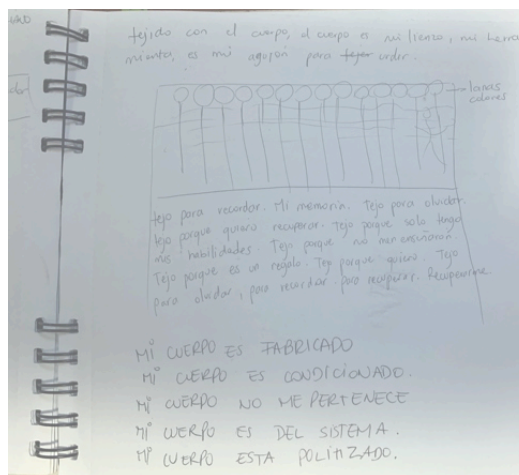 tejido con el cuerpo, el cuerpo es mi lienzo, mi herra
mienta, es mi aguijón para urdir.
lanas
colores
tejo para recordar. Mi memoria. Tejo para olvidar.
tejo porque quiero recuperar. Tejo porque solo tengo
mis habilidades. Tejo porque no me enseñaron.
Tejo porque es un regalo. Tejo porque quiero. Tejo
para olvidar, para recordar. para recuperar. Recuperarme
MI CUERPO ES FABRICADO
MI CUERPO ES CONDICIONADO.
MI CUERPO NO ME PERTENECE
MI CUERPO ES DEL SISTEMA.
MI CUERPO ESTA POLITIZADO.